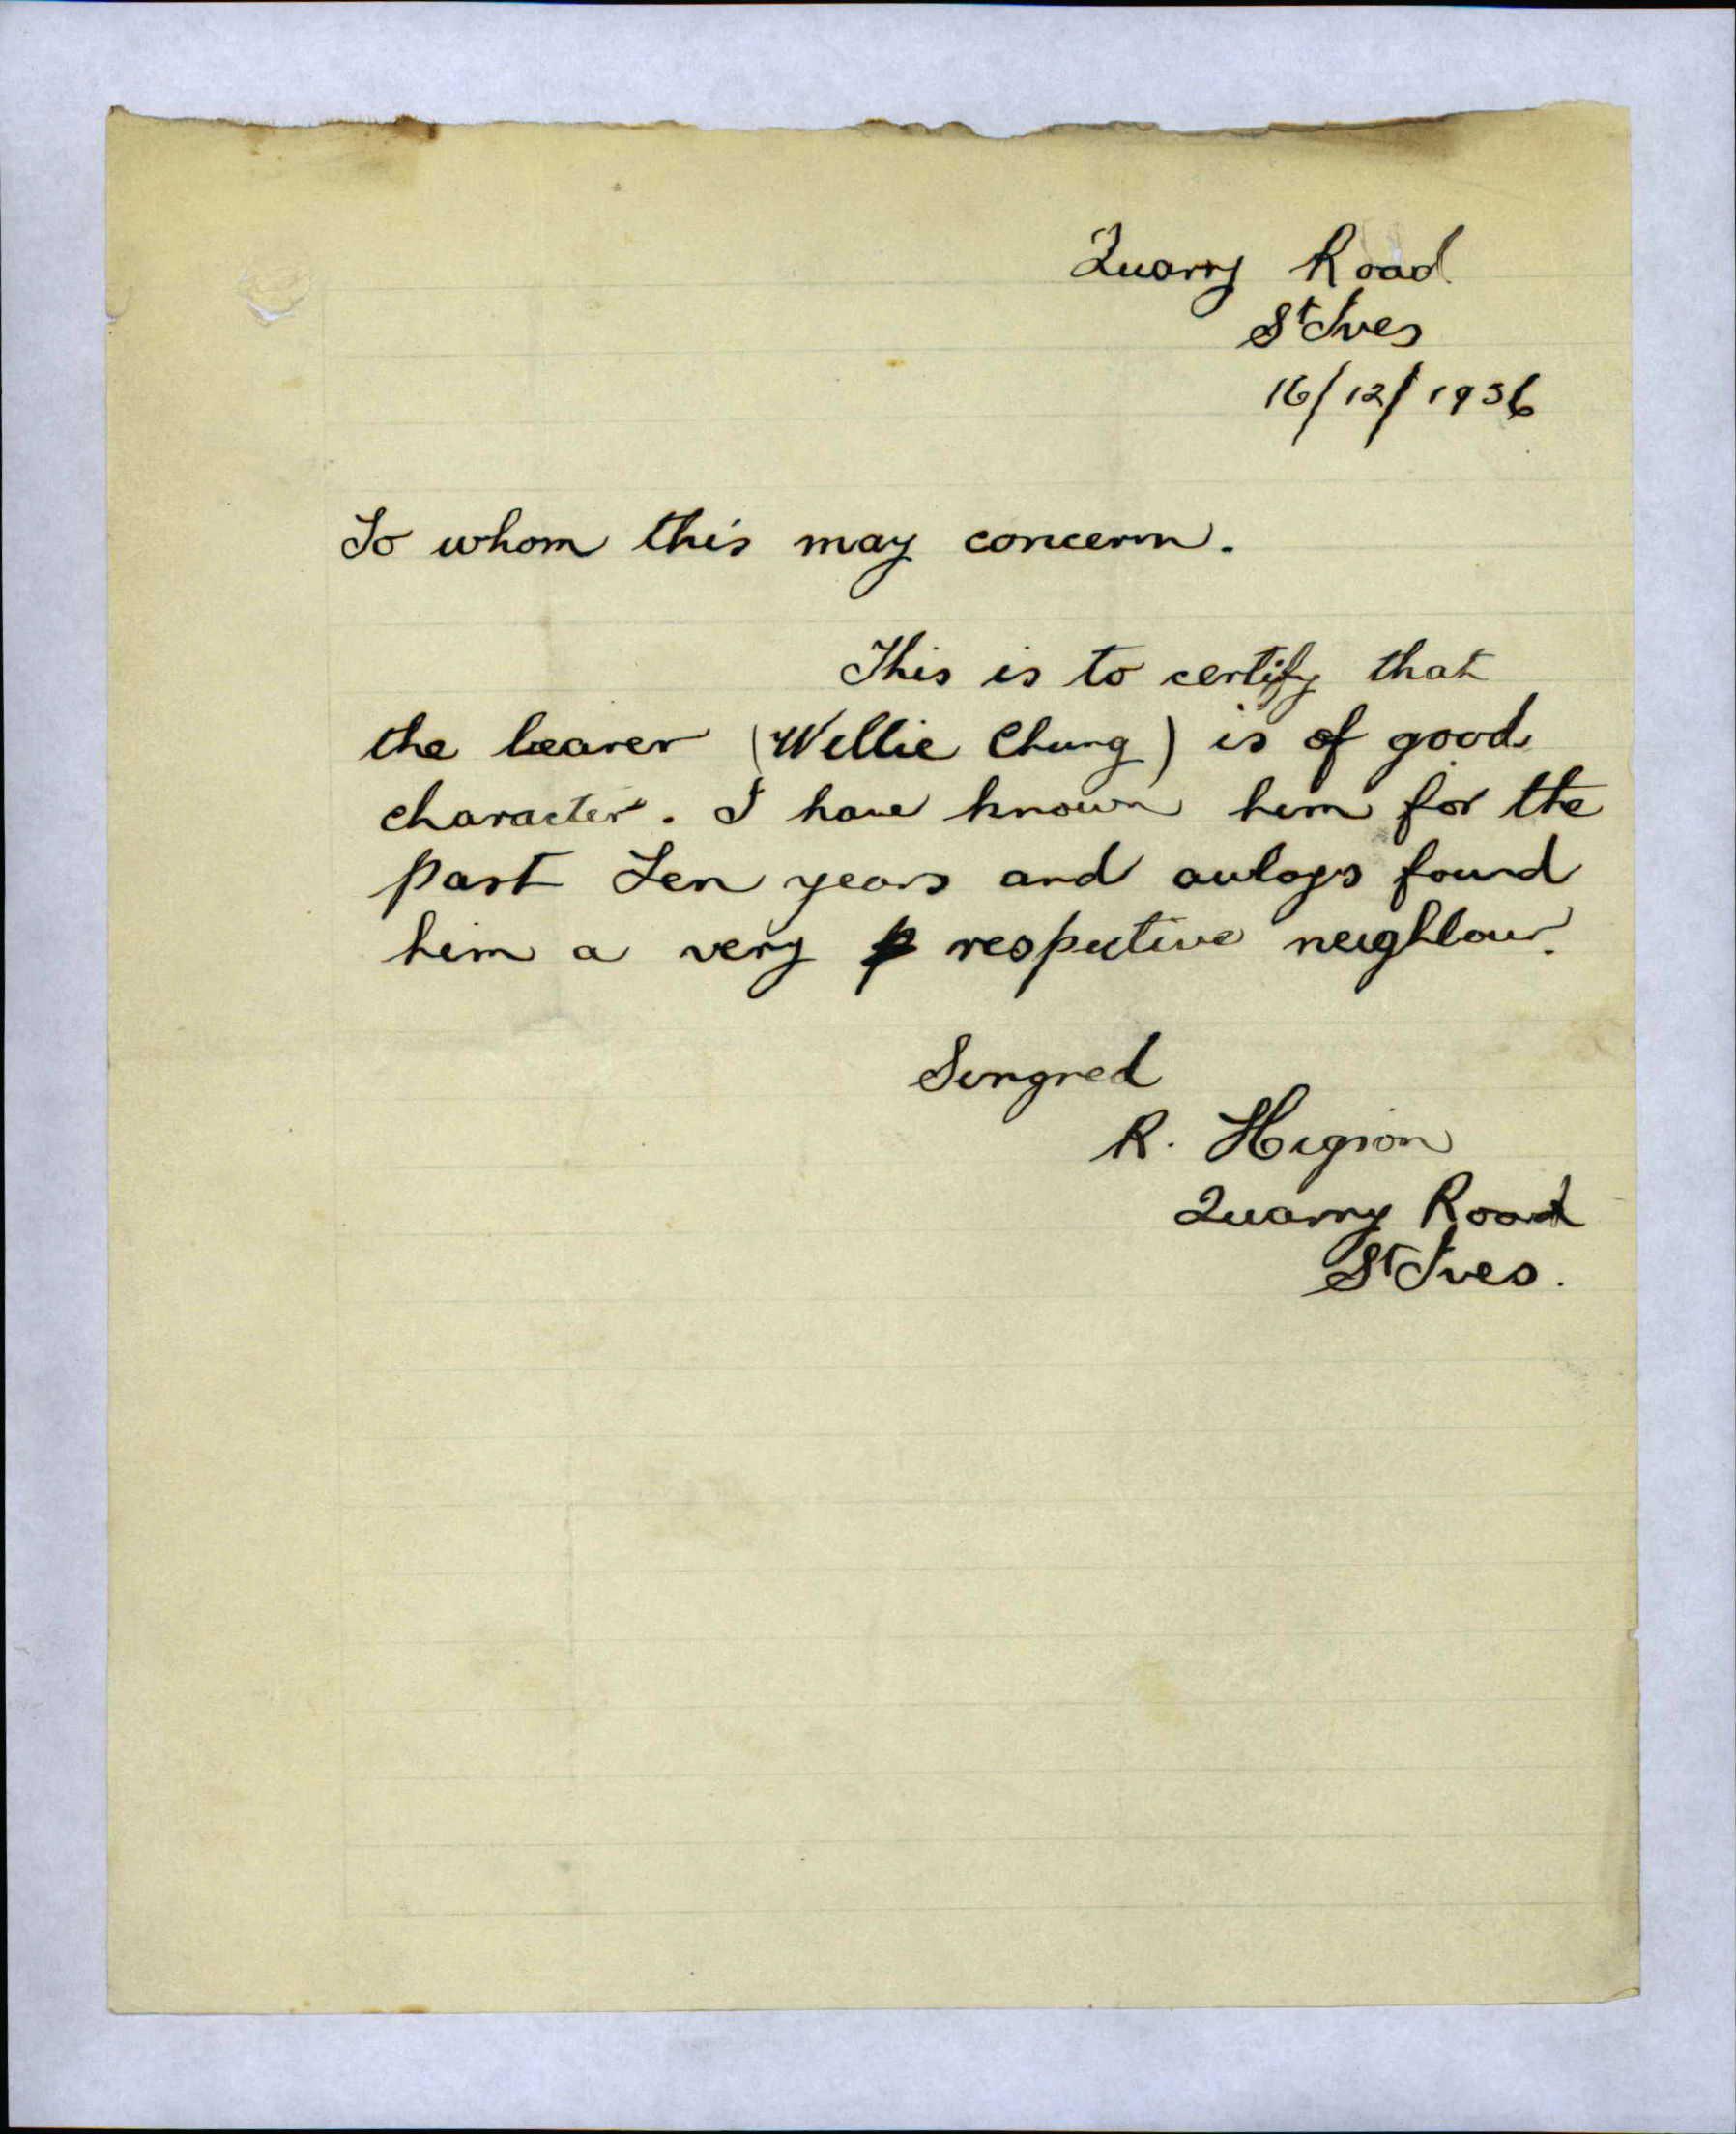 Quarry Road
St Ives
16/12/1936
To whom this may concern.
This is to certify that
the bearer (Willie Chung) is of good
character. I have known him for the
past Ten years and aulays found
him a very respective neighbour.
Singned
R. Higson
Quarry Road
St Ives.